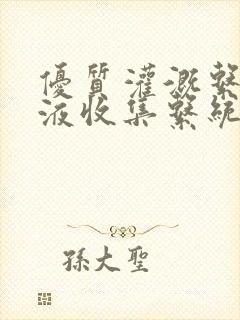 優質灌溉繫
液收集繫統
孫大聖